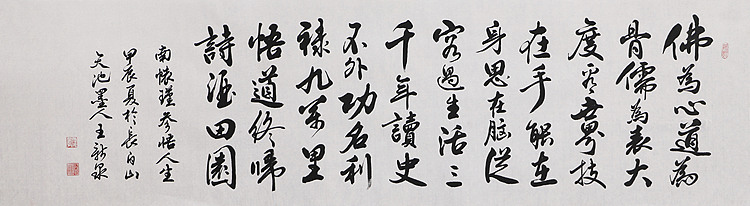 佛為心道為
骨儒為表大
度看世界技
在手能在
身思在腦從
容過生活三
千年讀史
不外功名利
祿九萬里
悟道終歸
詩酒田園
南懷瑾參悟人生
甲辰夏於長白山
天池墨人王新泉